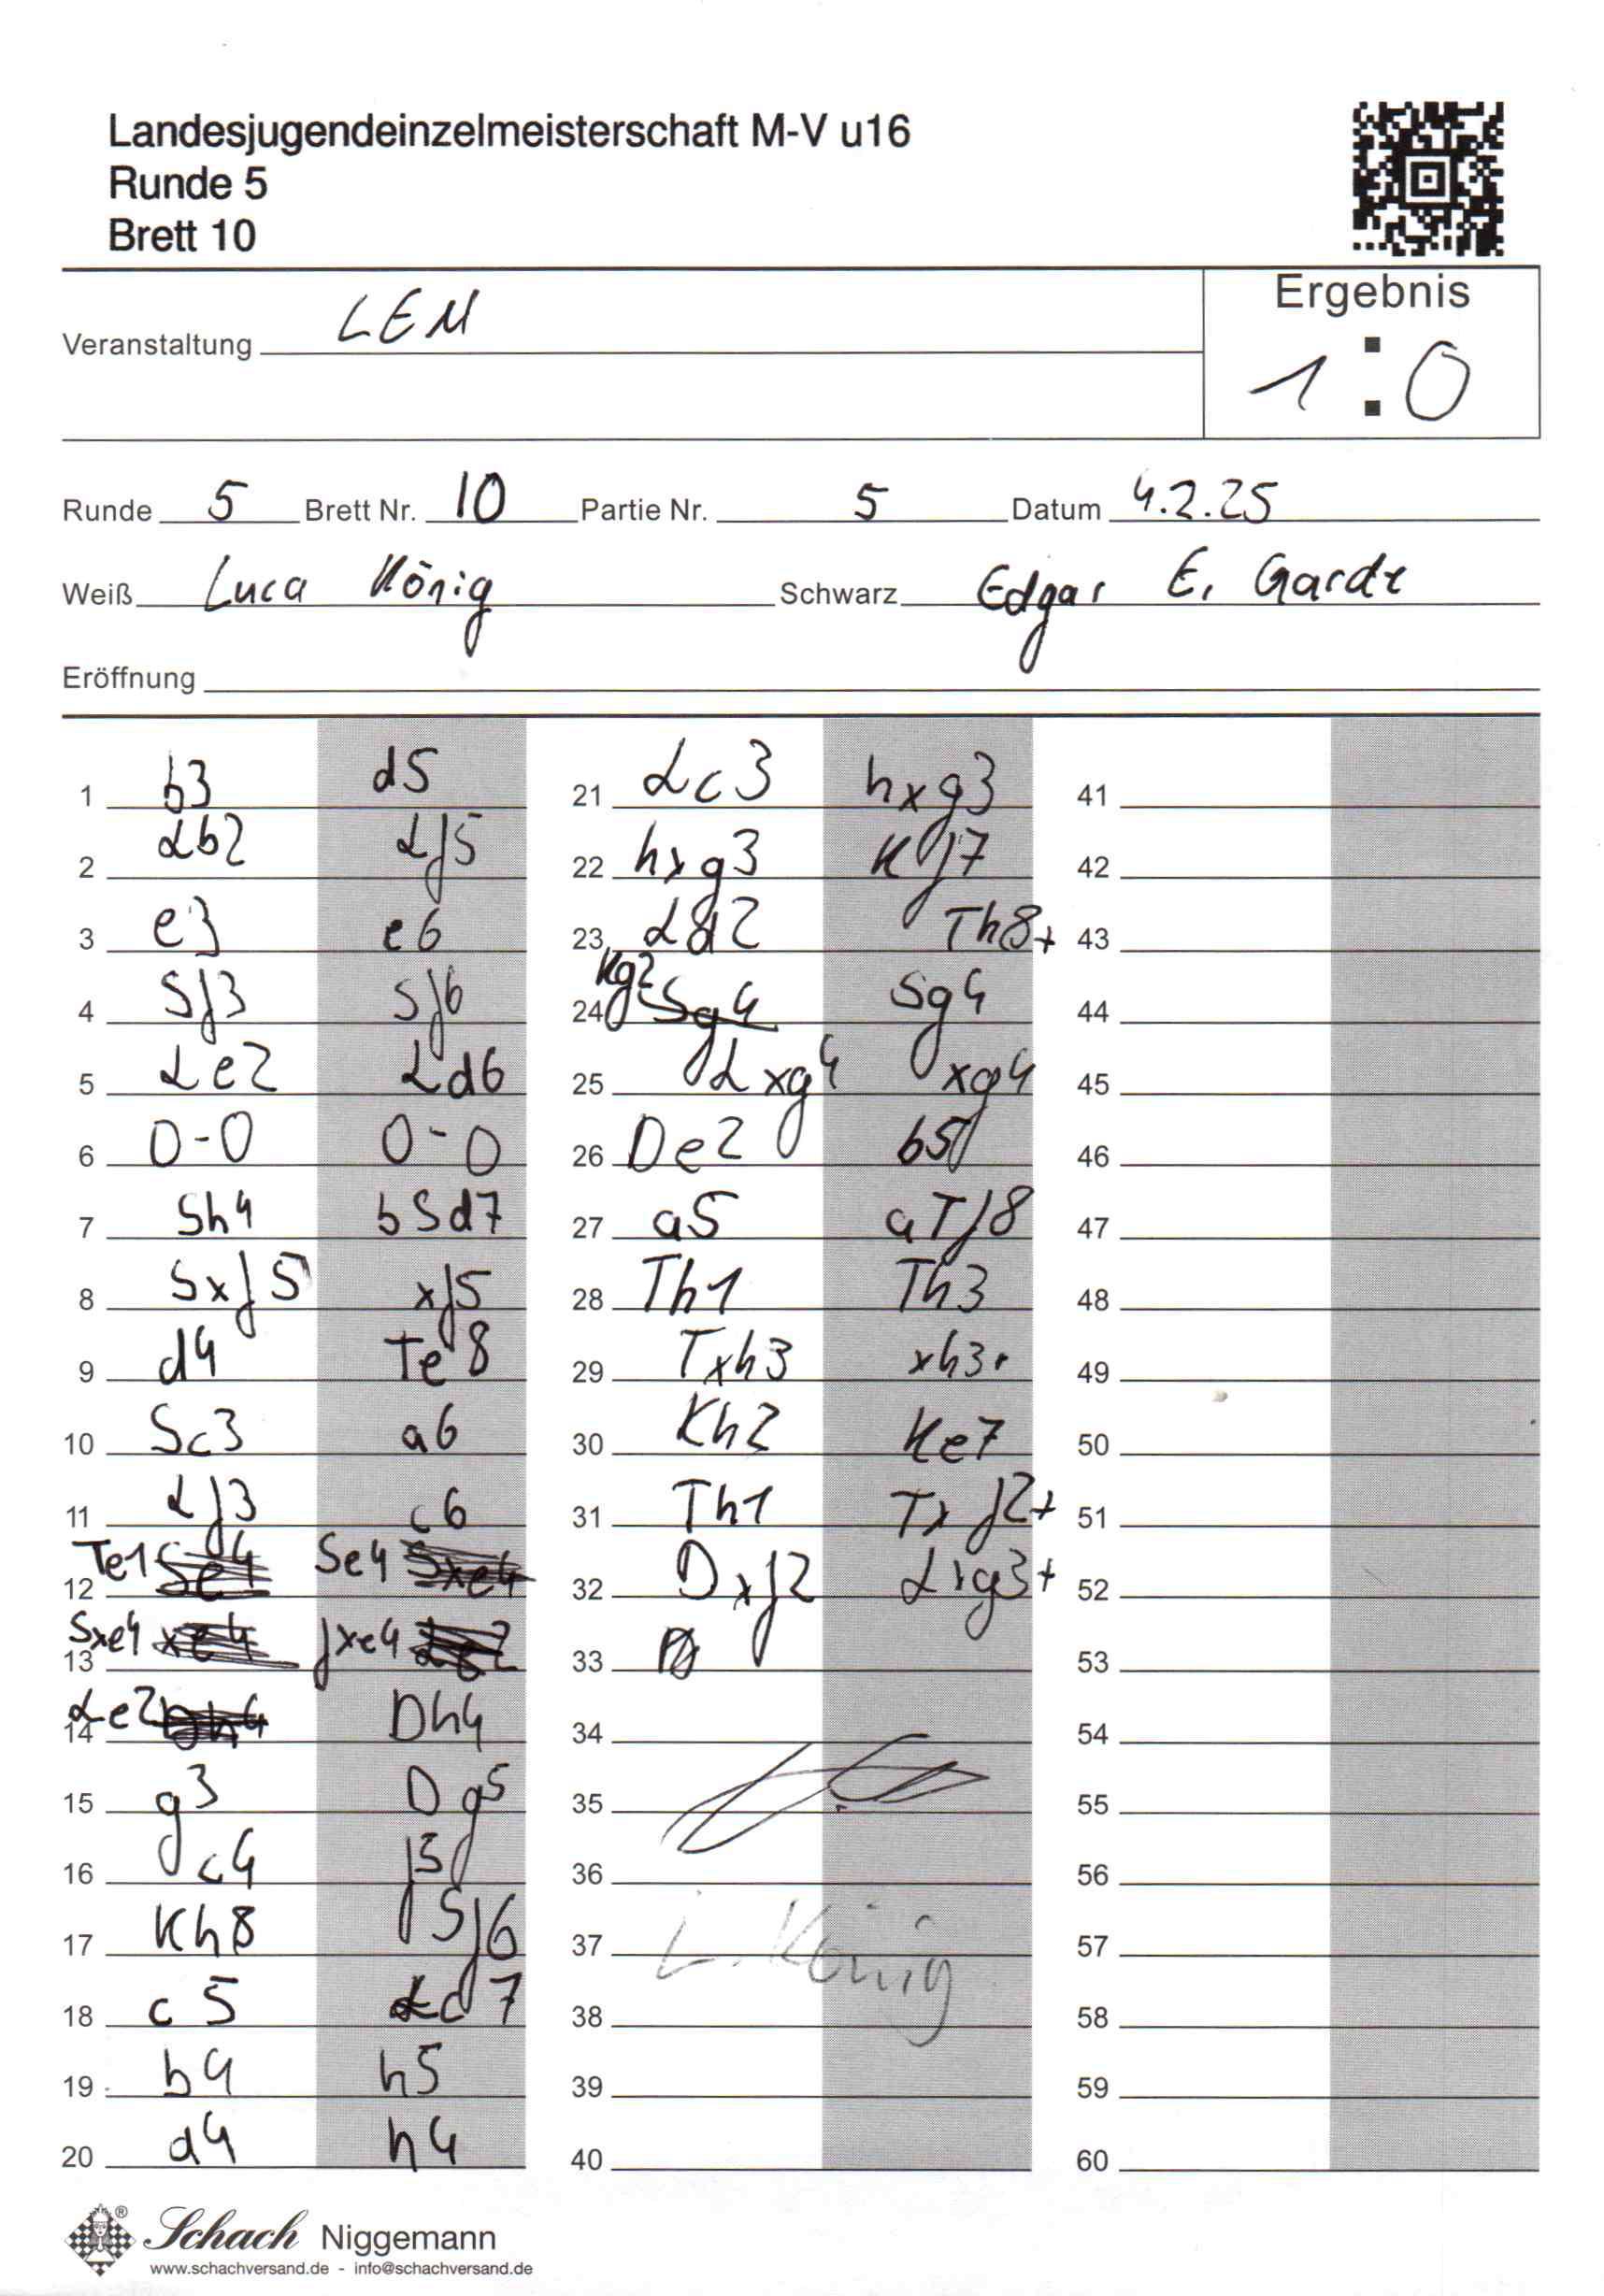 Landesjugendeinzelmeisterschaft M-V u16
Runde 5
Brett 10
Ergebnis
Veranstaltung LEM
1 : 0
Runde 5 Brett Nr. 10 Partie Nr. 5 Datum 4.2.25
Weiß Luca König Schwarz Edgar E. Garde
Eröffnung
1 b3 d5
2 Lb2 Lf5
3 e3 e6
4 Sf3 Sf6
5 Le2 Ld6
6 0-0 0-0
7 Sh4 bSd7
8 Sxf5 xf5
9 d4 Te8
10 Sc3 a6
11 Lf3 c6
12 Te1 Se4
13 Sxe4 fxe4
14 Le2 Dh4
15 g3 Dg5
16 c4 f5
17 Kh8 Sf6
18 c5 Lc7
19 b4 h5
20 a4 h4
21 Lc3 hxg3
22 hxg3 Kf7
23 Ld2 Th8+
24 Kg2 Sg4
25 Lxg4 xg4
26 De2 b5
27 a5 aTf8
28 Th1 Th3
29 Txh3 xh3+
30 Kh2 Ke7
31 Th1 Txf2+
32 Dxf2 Lxg3+
33
34
35
36
37 L. König
38
39
40
41
42
43
44
45
46
47
48
49
50
51
52
53
54
55
56
57
58
59
60
Schach Niggemann
www.schachversand.de - info@schachversand.de